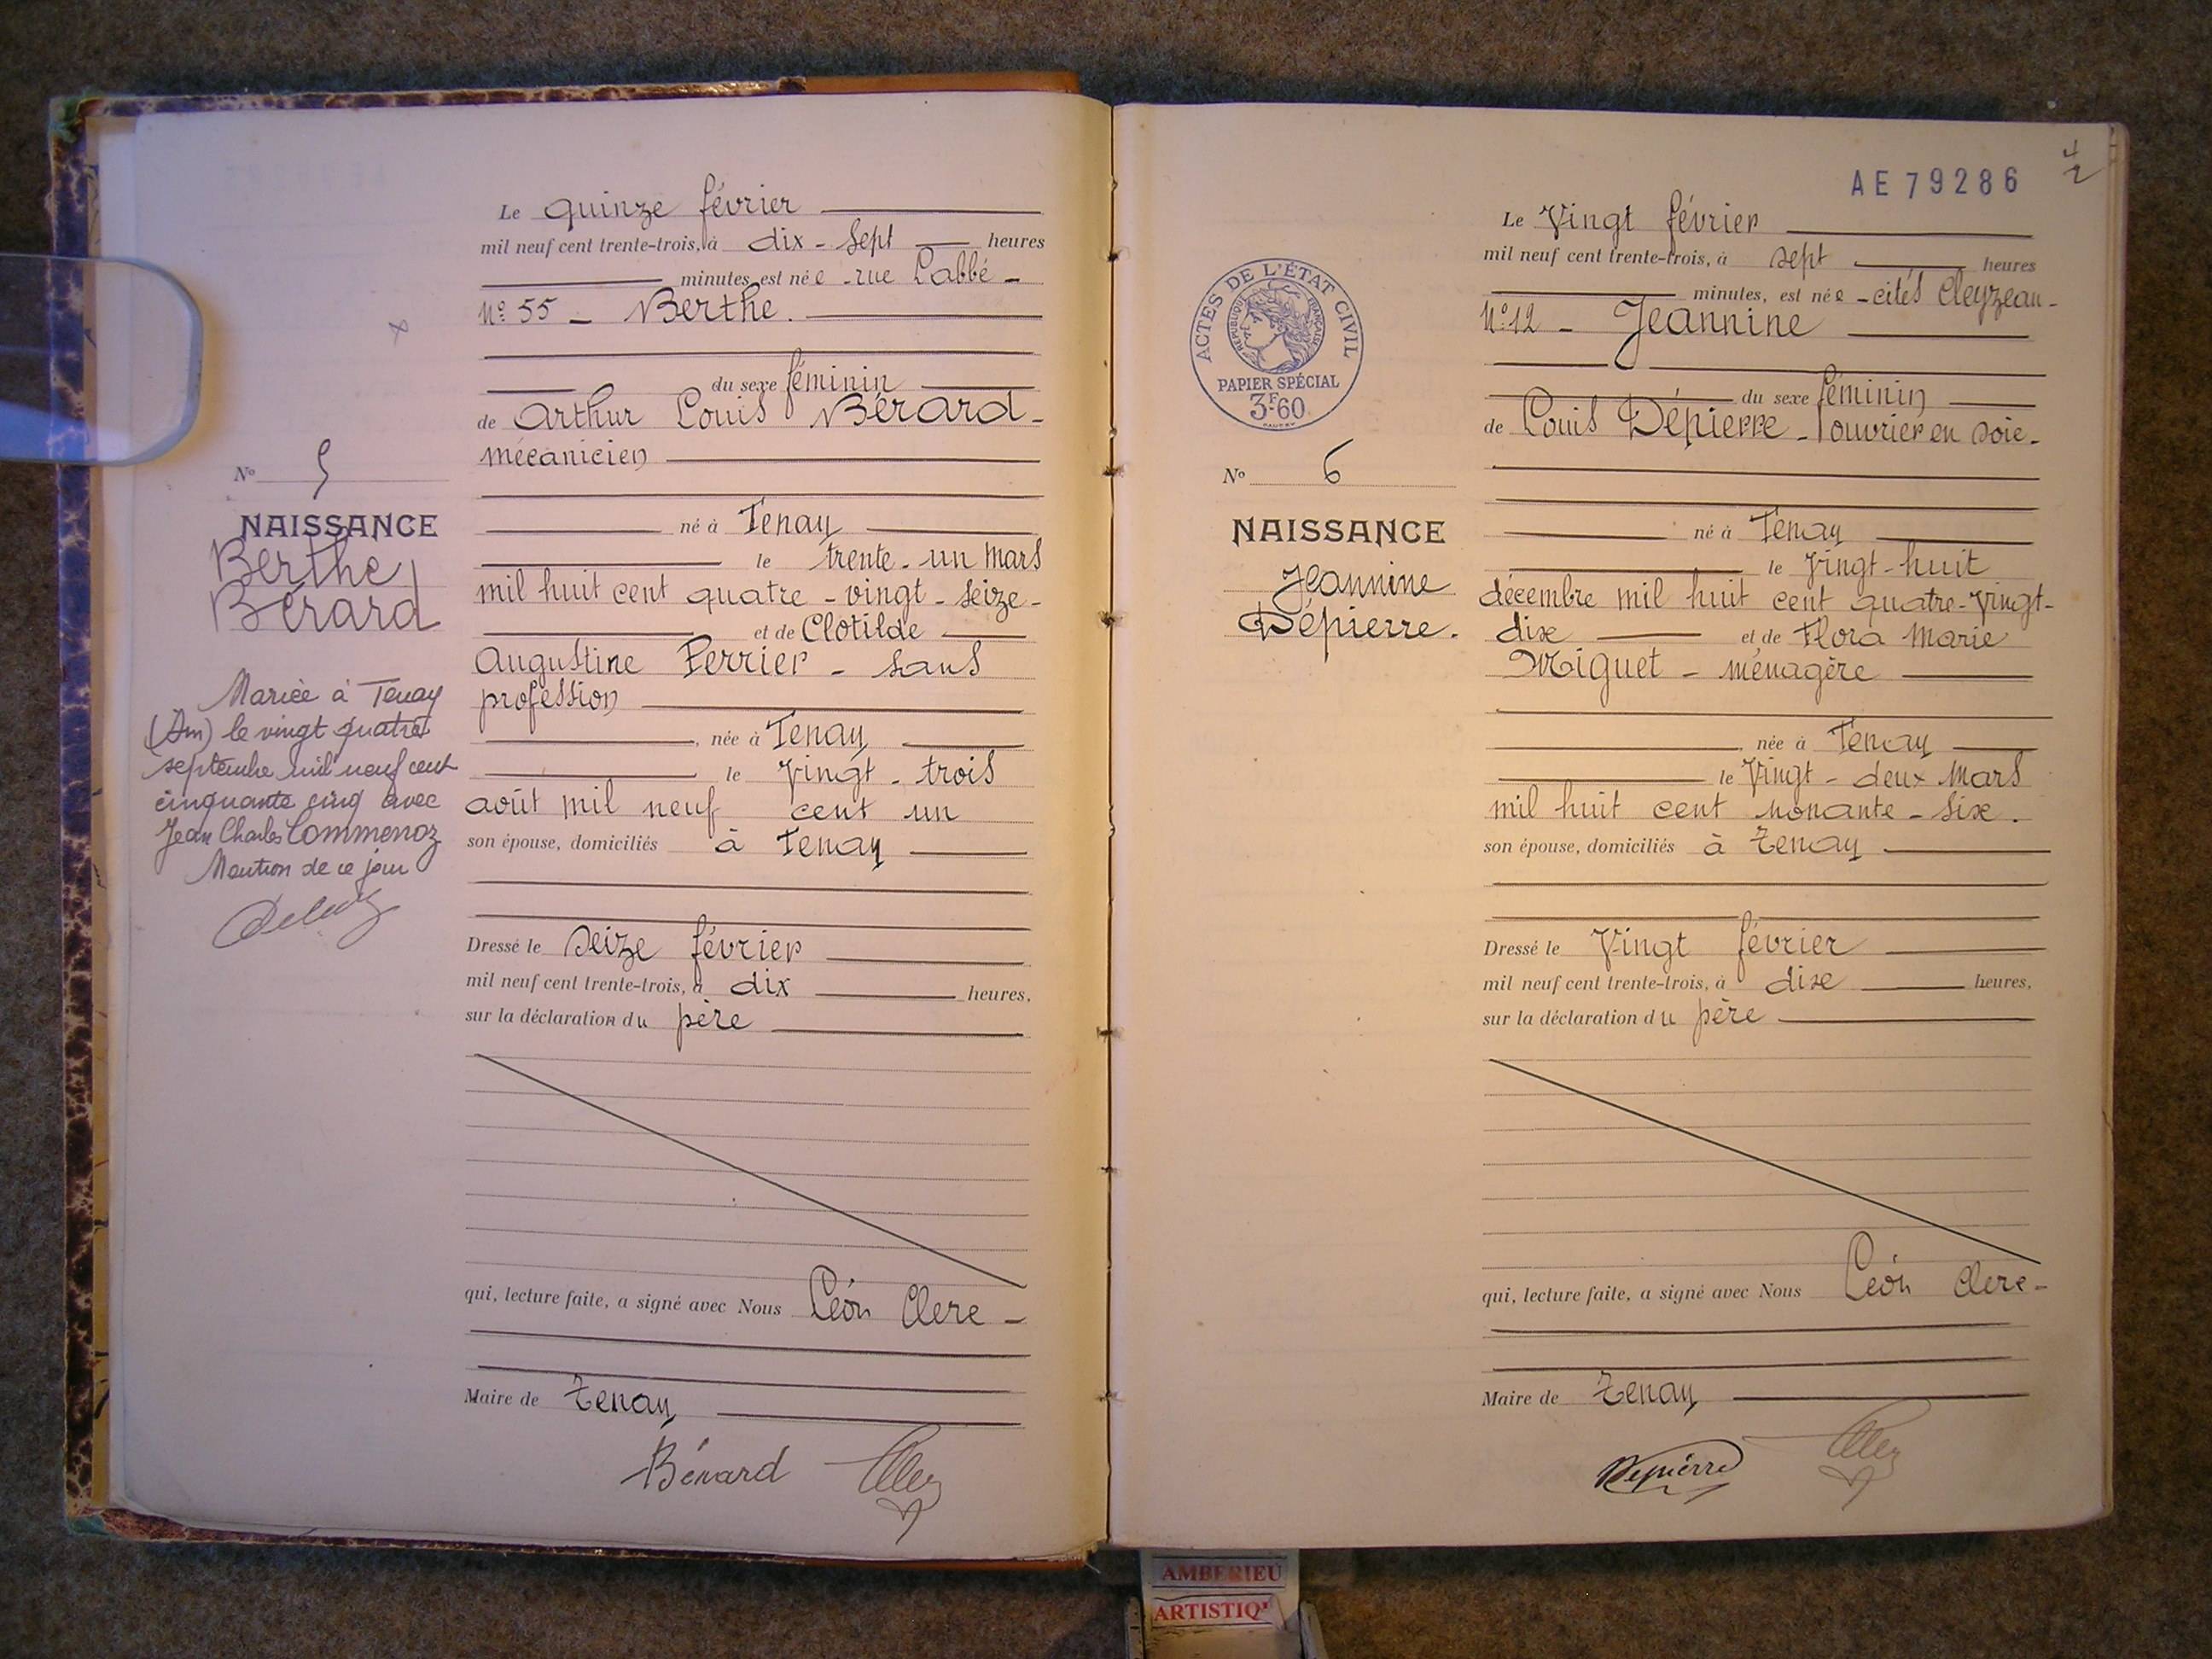 Le quinze février
mil neuf cent trente-trois, à dix-sept heures
minutes, est née rue Labbé -
N° 55 - Berthe.
du sexe féminin
de Arthur Louis Bérard -
mécanicien
N° 5
NAISSANCE
Berthe
Bérard
né à Tenay
le trente-un mars
mil huit cent quatre-vingt-seize -
et de Clotilde
Augustine Perrier - sans
profession
née à Tenay
le vingt-trois
août mil neuf cent un
son épouse, domiciliés à Tenay
Mariée à Tenay
(Ain) le vingt quatre
septembre mil neuf cent
cinquante cinq avec
Jean Charles Commenoz
Mention de ce jour
Dressé le seize février
mil neuf cent trente-trois, à dix heures,
sur la déclaration du père
qui, lecture faite, a signé avec Nous Léon Clerc -
Maire de Tenay
Bérard
AE 79286
Le Vingt février
mil neuf cent trente-trois, à sept heures
minutes, est née - cités Cleyzeau -
N° 12 - Jeannine
ACTES DE L'ÉTAT CIVIL
RÉPUBLIQUE FRANÇAISE
PAPIER SPÉCIAL
3F60
du sexe féminin
de Louis Dépierre - ouvrier en soie -
N° 6
NAISSANCE
Jeannine
Dépierre.
né à Tenay
le Vingt-huit
décembre mil huit cent quatre-vingt-
dix et de Flora Marie
Miguet - ménagère
née à Tenay
le Vingt-deux Mars
mil huit cent nonante-six.
son épouse, domiciliés à Tenay
Dressé le Vingt février
mil neuf cent trente-trois, à dix heures,
sur la déclaration du père
qui, lecture faite, a signé avec Nous Léon Clerc -
Maire de Tenay
Depierre
AMBERIEU
ARTISTIQ'